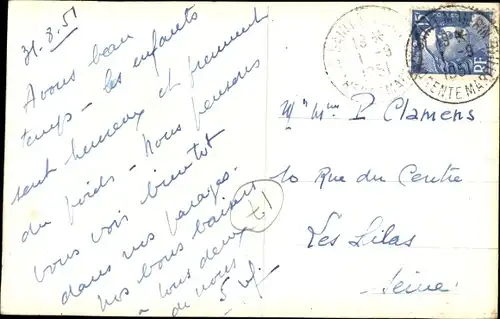 31.8.51
Avons beau
temps - les enfants
sont heureux et prennent
du poids - Nous pensons
vous voir bientôt
dans nos parages.
Nos bons baisers
à tous deux
de nous 5
17
1951
Mr Mme P. Clamens
10 Rue du Centre
Les Lilas
Seine